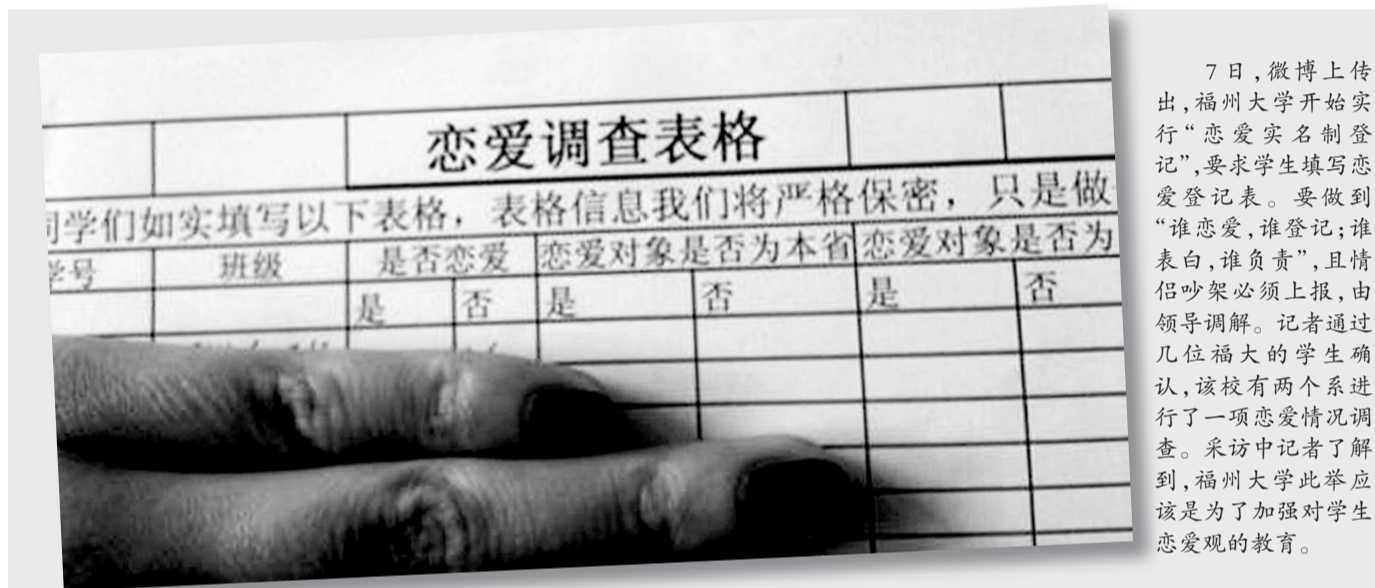 恋爱调查表格
同学们如实填写以下表格，表格信息我们将严格保密，只是做
学号 班级 是否恋爱 恋爱对象是否为本省 恋爱对象是否为
是 否 是 否 是 否
7日,微博上传
出,福州大学开始实
行“恋爱实名制登
记”,要求学生填写恋
爱登记表。要做到
“谁恋爱,谁登记;谁
表白,谁负责”,且情
侣吵架必须上报,由
领导调解。记者通过
几位福大的学生确
认,该校有两个系进
行了一项恋爱情况调
查。采访中记者了解
到,福州大学此举应
该是为了加强对学生
恋爱观的教育。